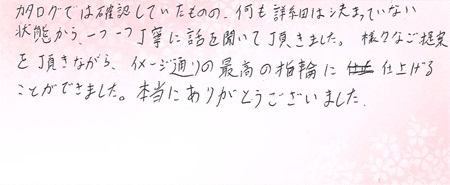 カタログでは確認していたものの、何も詳細は決まっていない
状態から、一つ一つ丁寧に話を聞いて頂きました。様々なご提案
を頂きながら、イメージ通りの最高の指輪に 仕上げる
ことができました。本当にありがとうございました。